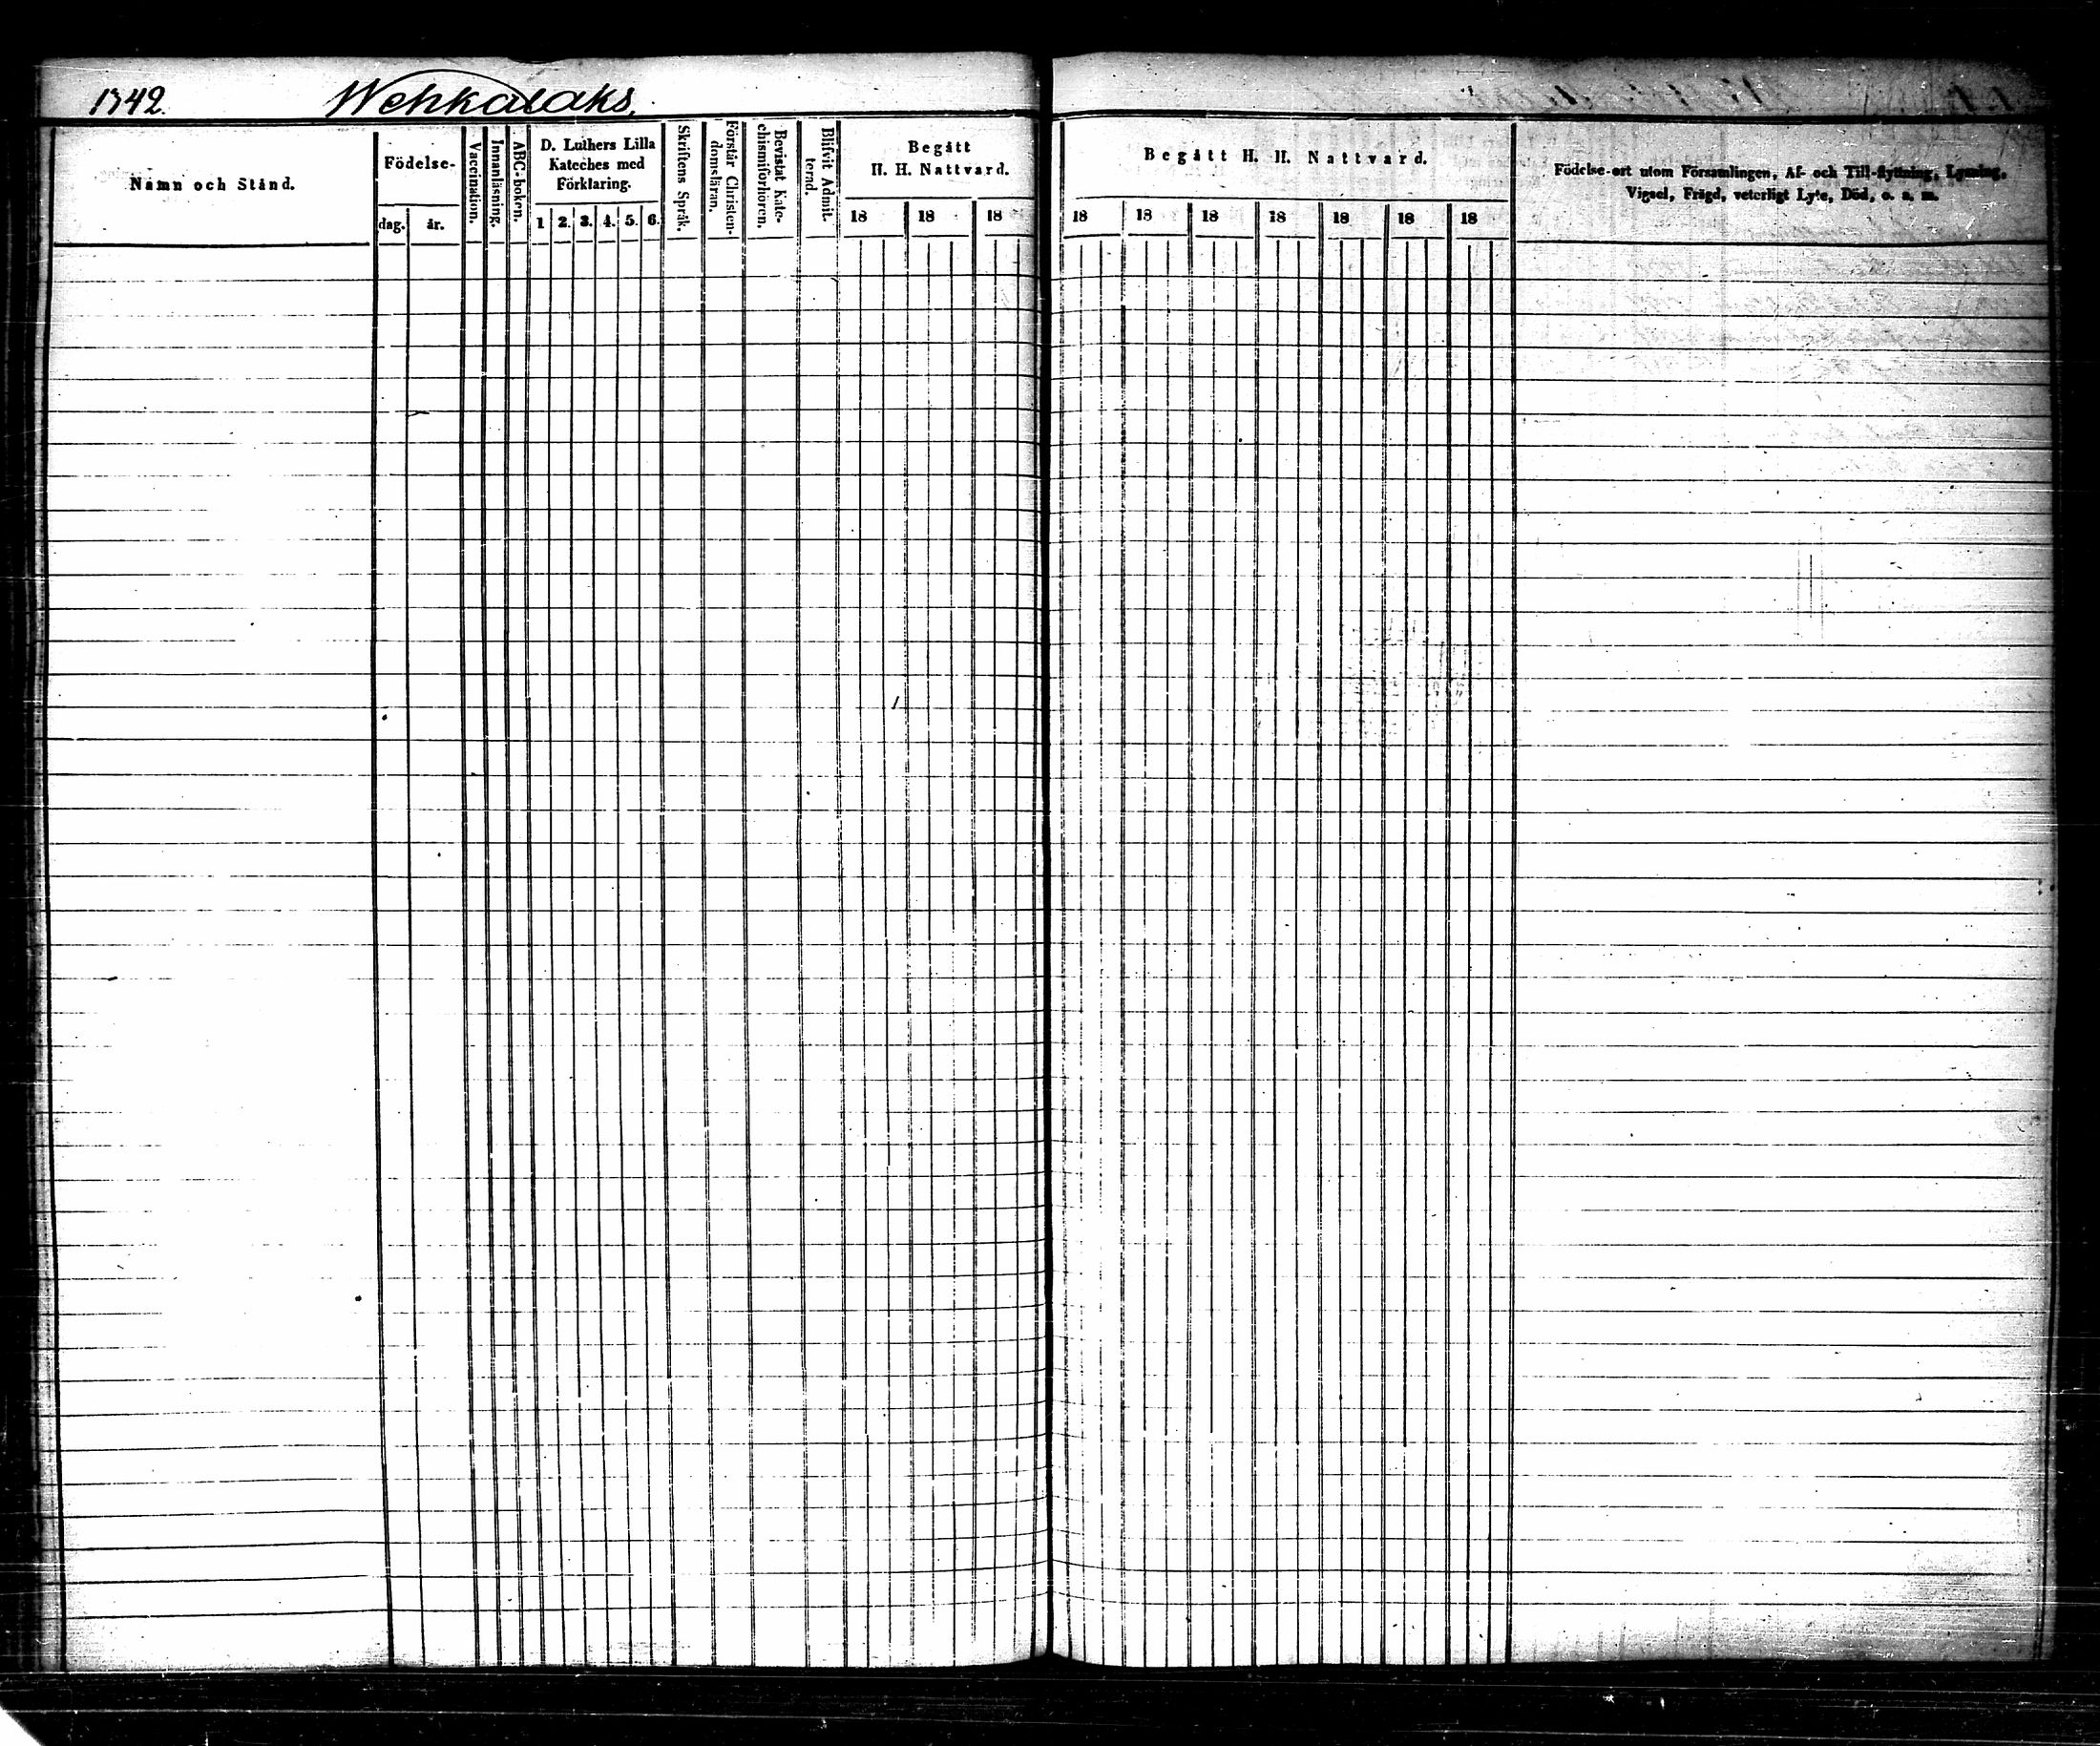 1342. Wehkalaks.
Namn och Stånd.
Födelse-
dag. år.
Vaccination.
Innanläsning.
ABC-boken.
D. Luthers Lilla
Kateches med
Förklaring.
1 2. 3. 4. 5. 6.
Skriftens Språk.
Förstår Christen-
domsläran.
Bevistat Kate-
chismiförhören.
Blifvit Admit-
terad.
Begått
H. H. Nattvard.
18 18 18
Begått H. H. Nattvard.
18 18 18 18 18 18 18
Födelse-ort utom Församlingen, Af- och Till-flyttning, Lysning,
Vigsel, Frägd, veterligt Lyte, Död, o. s. m.